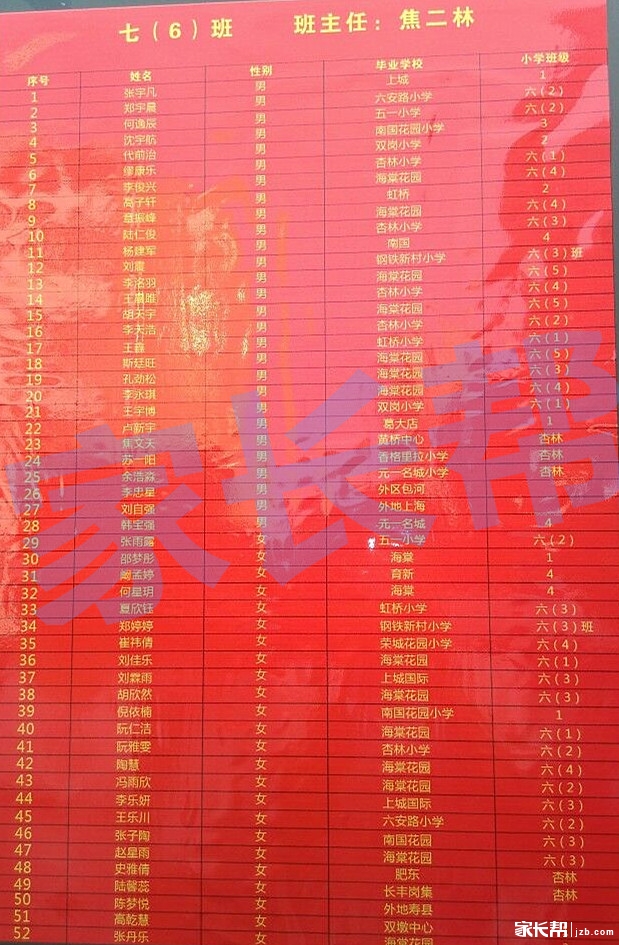 七（6）班 班主任：焦二林
序号 姓名 性别 毕业学校 小学班级
1 张宇凡 男 上城 1
2 郑宇晨 男 六安路小学 六（2）
3 何逸辰 男 五一小学 六（2）
4 沈宇航 男 南国花园小学 3
5 代前治 男 双岗小学 2
6 缪康乐 男 杏林小学 六（1）
7 李俊兴 男 海棠花园 六（4）
8 高子轩 男 虹桥 2
9 章振峰 男 海棠花园 六（4）
10 陆仁俊 男 杏林小学 六（3）
11 杨建军 男 南国 4
12 刘震 男 钢铁新村小学 六（3）班
13 李洺羽 男 海棠花园 六（5）
14 王晨唯 男 杏林小学 六（4）
15 胡天宇 男 海棠花园 六（5）
16 李天浩 男 杏林小学 六（2）
17 王鑫 男 虹桥小学 六（1）
18 斯廷旺 男 海棠花园 六（5）
19 孔劲松 男 海棠花园 六（3）
20 李永琪 男 海棠花园 六（4）
21 王宇博 男 双岗小学 六（1）
22 卢新宇 男 葛大店 1
23 焦文天 男 黄桥中心 杏林
24 苏一阳 男 香格里拉小学 杏林
25 余浩淼 男 元一名城小学 杏林
26 李忠星 男 外区包河
27 刘自强 男 外地上海
28 韩宝强 男 元一名城 4
29 张雨露 女 五一小学 六（2）
30 邵梦彤 女 海棠 1
31 阚孟婷 女 育新 4
32 何星玥 女 海棠 4
33 夏欣钰 女 虹桥小学 六（3）
34 郑婷婷 女 钢铁新村小学 六（3）班
35 崔祎倩 女 荣城花园小学 六（4）
36 刘佳乐 女 海棠花园 六（1）
37 刘霖雨 女 上城国际 六（3）
38 胡欣然 女 海棠花园 六（3）
39 倪依楠 女 南国花园小学 1
40 阮仁洁 女 海棠花园 六（1）
41 阮雅雯 女 杏林小学 六（2）
42 陶慧 女 海棠花园 六（4）
43 冯雨欣 女 海棠花园 六（2）
44 李乐妍 女 上城国际 六（3）
45 王乐川 女 六安路小学 六（2）
46 张子陶 女 南国花园 六（3）
47 赵星雨 女 海棠花园 六（3）
48 史雅倩 女 肥东 杏林
49 陆馨蕊 女 长丰岗集 杏林
50 陈梦悦 女 外地寿县
51 高乾慧 女 双墩中心
52 张丹乐 女 海棠花园
家长帮
家长帮 jzb.com